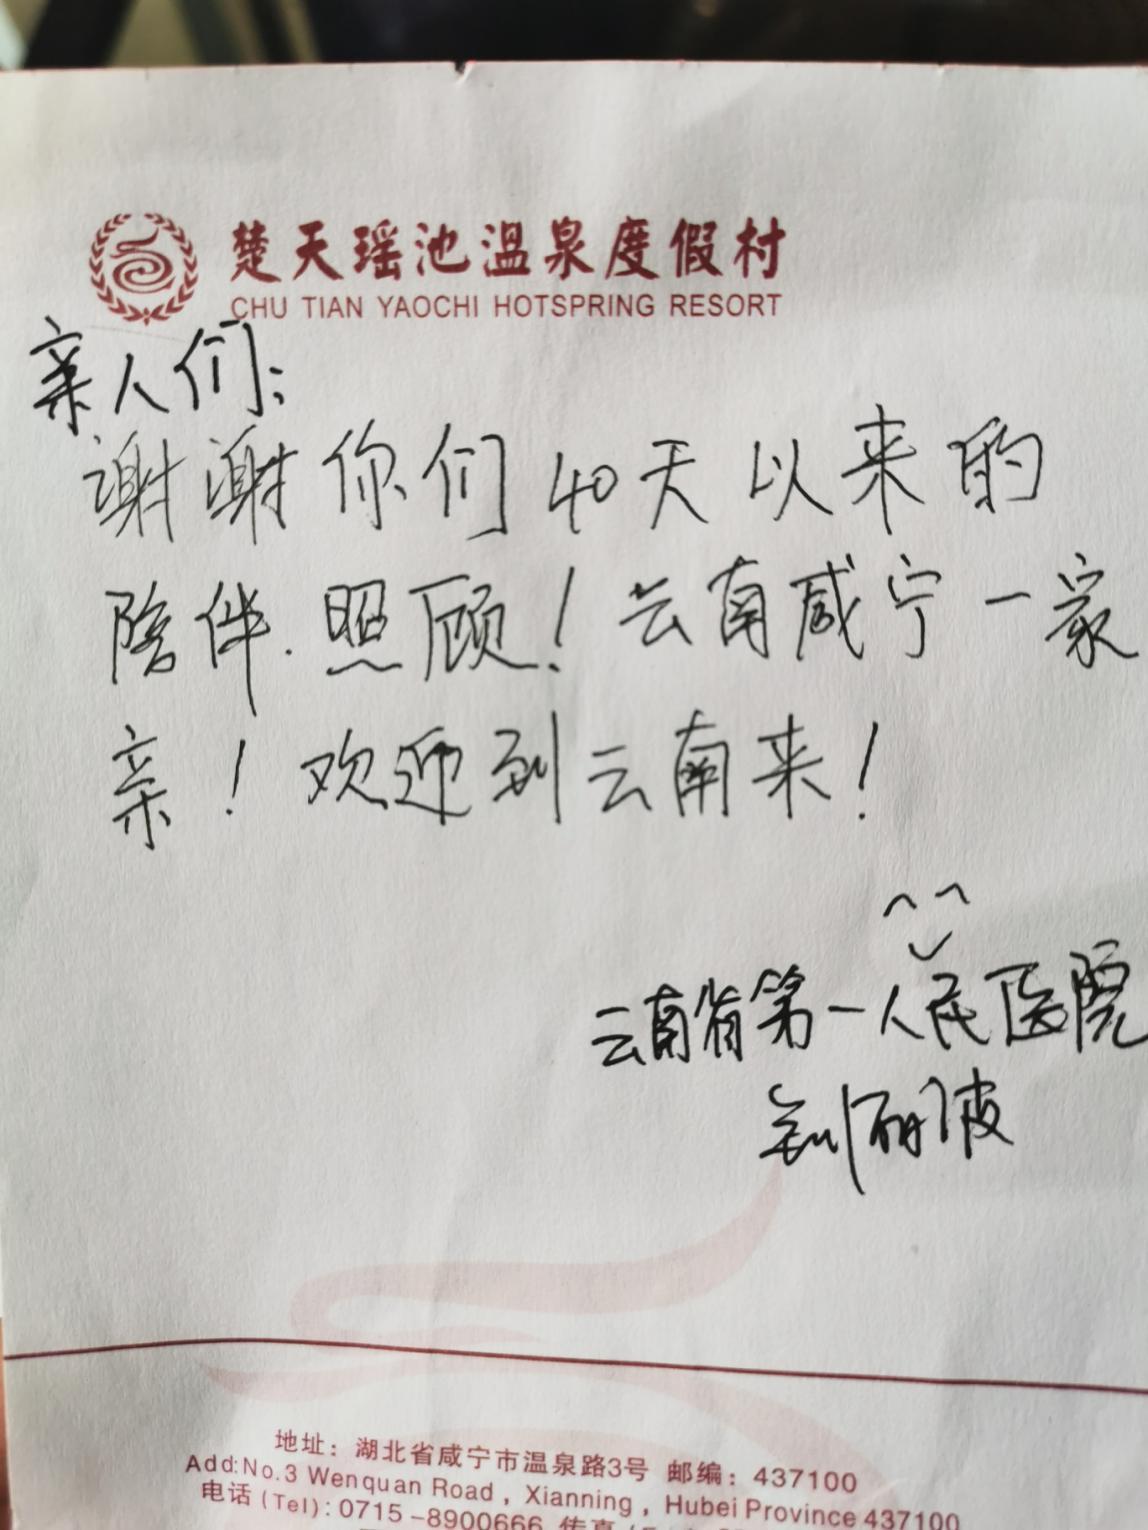 楚天瑶池温泉度假村
CHU TIAN YAOCHI HOTSPRING RESORT
亲人们:
谢谢你们40天以来的
陪伴.照顾!云南咸宁一家
亲!欢迎到云南来!
云南省第一人民医院
刘丽波
地址:湖北省咸宁市温泉路3号 邮编:437100
Add:No.3 Wenquan Road , Xianning , Hubei Province 437100
电话(Tel):0715-8900666 传真